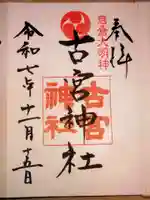 奉拝
大明神
古宮神社
古宮神社
令和七年十一月十五日